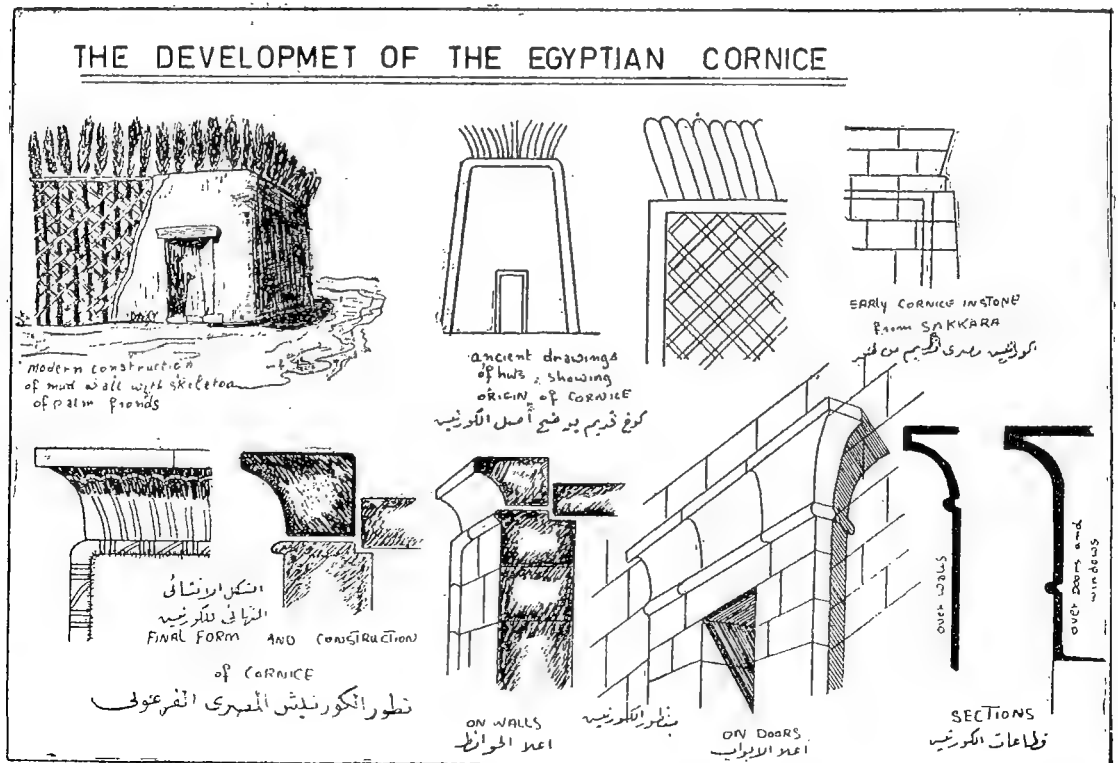 THE DEVELOPMET OF THE EGYPTIAN CORNICE
modern construction
of mud wall with skeleton
of palm fronds
ancient drawings
of huts, showing
ORIGIN of CORNICE
كوخ قديم يوضح أصل الكورنيش
EARLY CORNICE IN STONE
from SAKKARA
كورنيش مصرى قديم من
الشكل الانشائى
النهائى للكورنيش
FINAL FORM AND CONSTRUCTION
of CORNICE
تطور الكورنيش المصرى الفرعونى
ON WALLS
اعلا الحوائط
منظور الكورنيش
ON DOORS
أعلا الابواب
over walls
over Doors and
windows
SECTIONS
قطاعات الكورنيش